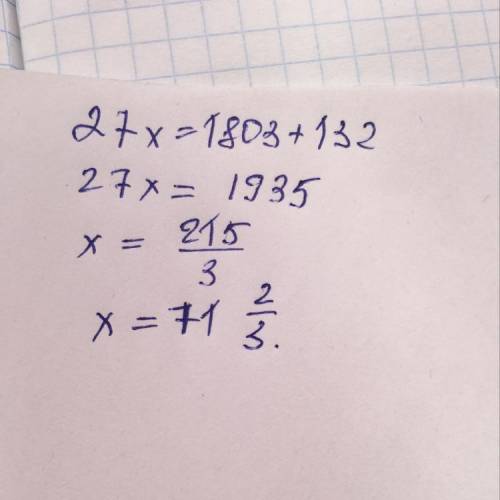 27x=1803+132
27x= 1935
x = 215/3
x = 71 2/3.